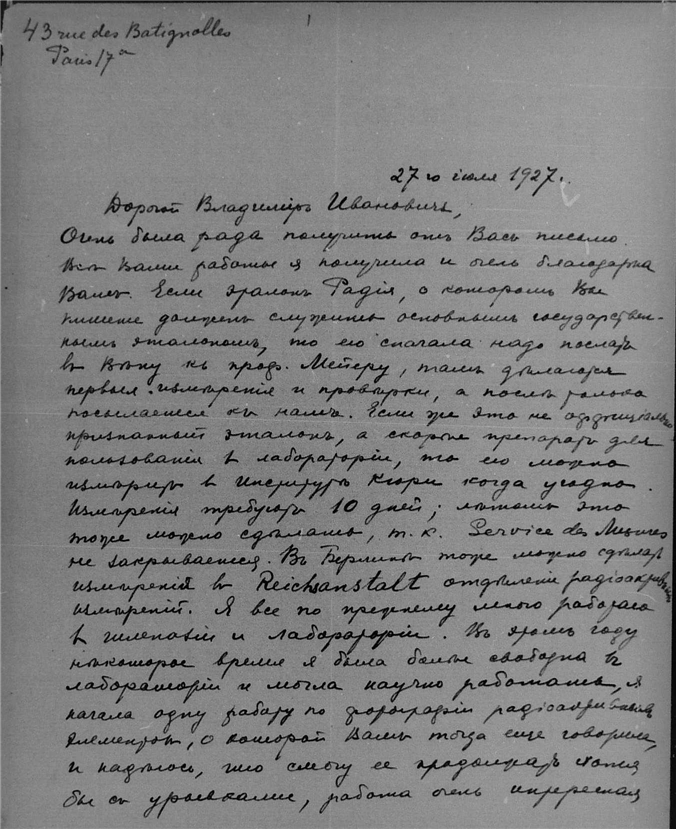 43 rue des Batignolles
Paris 17e
1
27го іюля 1927.
Дорогой Владиміръ Ивановичъ,
Очень была рада получить отъ Васъ письмо.
Всѣ Вами работы я получила и очень благодарна
Вамъ. Если эталонъ Радія, о которомъ Вы
пишете долженъ служить основнымъ государствен-
нымъ эталономъ, то его сначала надо послать
въ Вѣну къ проф. Мейеру, тамъ дѣлаются
первыя измѣренія и провѣрки, а послѣ только
посылается къ намъ. Если же это не оффиціально
признанный эталонъ, а скорѣе препаратъ для
пользованія въ лабораторіи, то его можно
измѣрить въ Институтѣ Кюри когда угодно.
Измѣренія требуютъ 10 дней; лѣтомъ это
тоже можно сдѣлать, т.к. Service des Mesures
не закрывается. Въ Берлинѣ тоже можно сдѣлать
измѣренія въ Reichsanstalt отдѣленіе радіоактивныхъ
измѣреній. Я все по прежнему много работаю
въ и лабораторіи. Въ этомъ году
нѣкоторое время я была болѣе свободна въ
лабораторіи и могла научно работать, я
начала одну работу по фотографіи радіоактивныхъ
элементовъ, о которой Вамъ тогда еще говорила,
и надѣюсь, что смогу ее продолжать хотя
бы съ урывками, работа очень интересная